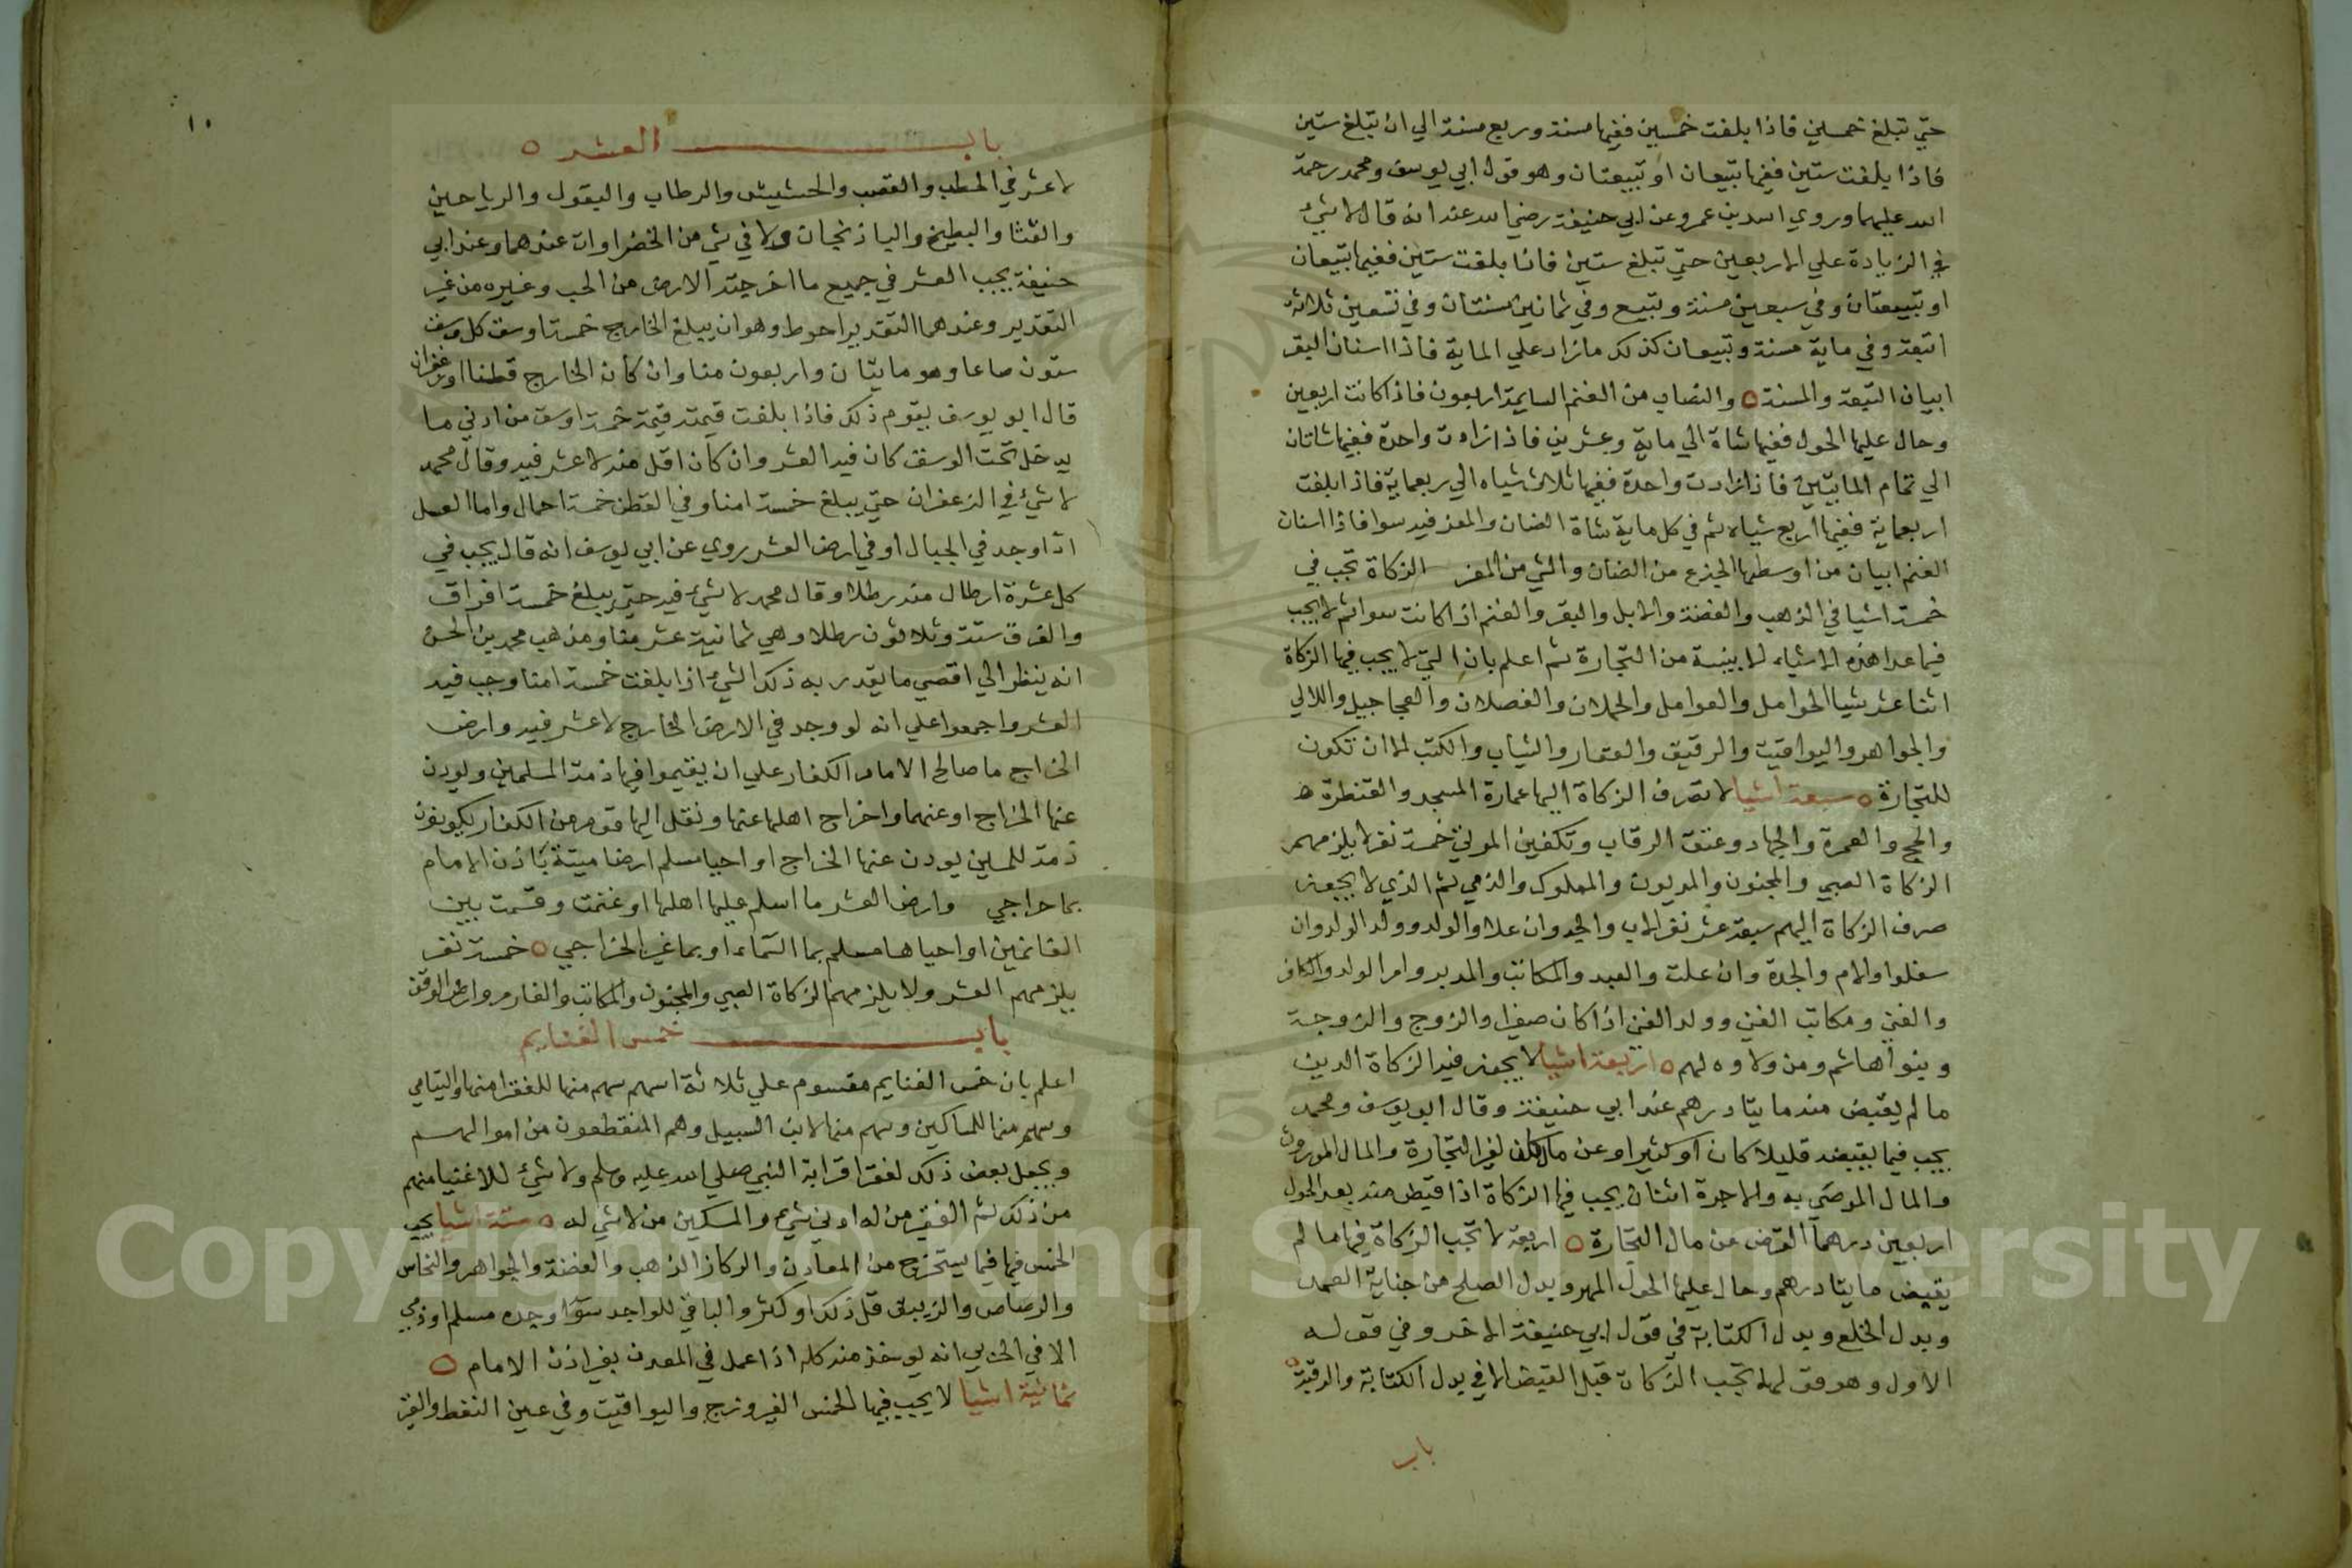 حتي تبلغ خمسين فاذا بلغت خمسين ففيها مسنة وربع مسنة الي ان تبلغ ستين
فاذا بلغت ستين ففيها تبيعان او تبيعتان وهو قول ابي يوسف ومحمد رحمة
الله عليهما وروي اسد بن عمرو عن ابي حنيفة رضي الله عنه انه قال لا شيء
في الزيادة علي الاربعين حتي تبلغ ستين فاذا بلغت ستين ففيها تبيعان
او تبيعتان وفي سبعين مسنة وتبيع وفي ثمانين مسنتان وفي تسعين ثلاثة
اتبعة وفي ماية مسنة وتبيعان كذلك مازاد علي الماية فاذا اسنان البقر
ابيان التبعة والمسنة ٥ والنصاب من الغنم السايمة اربعون فاذا كانت اربعين
وحال عليها الحول ففيها شاة الي ماية وعشرين فاذا زادت واحدة ففيها شاتان
الي تمام المايتين فاذا زادت واحدة ففيها ثلاث شياه الي ربعماية فاذا بلغت
اربعماية ففيها اربع شياه ثم في كل ماية شاة الضان والمعز فيه سوا فاذا اسنان
الغنم ابيان من اوسطها الجذع من الضان والثني من المعز الزكاة تجب في
خمسة اشيا في الذهب والفضة والابل والبقر والغنم اذا كانت سوائم لا يجب
فيما عدا هذه الاشياء الا بنية من التجارة ثم اعلم بان التي لا يجب فيها الزكاة
اثنا عشر شيا الحوامل والعوامل والحملان والفصلان والعجاجيل واللالي
والجواهر واليواقيت والرقيق والعقار والثياب والكتب الا ان تكون
للتجارة ٥ سبعة اشيا لا تصرف الزكاة اليها عمارة المسجد والقنطرة
والحج والعمرة والجهاد وعتق الرقاب وتكفين الموتي خمسة نفر لا يلزمهم
الزكاة الصبي والمجنون والمديون والمملوك والذمي ثم الذي لا يجوز
صرف الزكاة اليهم سبعة عشر نفر الاب والجد وان علا والولد وولد الولد وان
سفلوا والام والجدة وان علت والعبد والمكاتب والمدبر وام الولد والكافر
والغني ومكاتب الغني وولد الغني اذا كان صغيرا والزوج والزوجة
وبنوا هاشم ومن ولاوه لهم ٥ اربعة اشيا لا يجوز فيه الزكاة الدين
ما لم يقبض منه مايتا درهم عند ابي حنيفة وقال ابو يوسف ومحمد
يجب فيما يقبضه قليلا كان او كثيرا وعن مال كان لغير التجارة والمال الموروث
والمال الموصي به والاجرة اثنان يجب فيها الزكاة اذا قبض منه بعد الحول
اربعين درهما القرض من مال التجارة ٥ اربعة لا تجب الزكاة فيها ما لم
يقبض مايتا درهم وحال عليها الحول المهر وبدل الصلح من جناية العمد
وبدل الخلع وبدل الكتابة في قول ابي حنيفة الاخر وفي قوله
الاول وهو قولهما تجب الزكاة قبل القبض الا في بدل الكتابة والرقبة
باب
١٠
باب العشر ٥
لا عشر في الحطب والقصب والحشيش والرطاب والبقول والرياحين
والقثا والبطيخ والباذنجان ولا في شي من الخضراوات عندهما وعند ابي
حنيفة يجب العشر في جميع ما اخرجته الارض من الحب وغيره من غير
التقدير وعندهما التقدير احوط وهو ان يبلغ الخارج خمسة اوسق كل وسق
ستون صاعا وهو مايتان واربعون منا وان كان الخارج قطنا او زعفران
قال ابو يوسف يقوم ذلك فاذا بلغت قيمته قيمة خمسة اوسق من ادني ما
يدخل تحت الوسق كان فيه العشر وان كان اقل منه لا عشر فيه وقال محمد
لا شيء في الزعفران حتي يبلغ خمسة امنا وفي القطن خمسة احمال واما العسل
اذا وجد في الجبال او في ارض العشر روي عن ابي يوسف انه قال يجب في
كل عشرة ارطال منه رطلا وقال محمد لا شيء فيه حتي يبلغ خمسة افراق
والفرق ستة وثلاثون رطلا وهي ثمانية عشر منا ومذهب محمد بن الحسن
انه ينظر الي اقصي ما يقدر به ذلك الشيء اذا بلغت خمسة امنا وجب فيه
العشر واجمعوا علي انه لو وجد في الارض الخارج لا عشر فيه وارض
الخراج ما صالح الامام الكفار علي ان يقيموا فيها ذمة المسلمين ويودن
عنها الخراج او عنهما واخراج اهلها عنها ونقل اليها قوم من الكفار يكونون
ذمة للمسلمين يودن عنها الخراج او احيا مسلم ارضا ميتة باذن الامام
بما خراجي وارض العشر ما اسلم عليها اهلها او غنمت وقسمت بين
الغانمين او احياها مسلم بما السماء او بما غير الخراجي ٥ خمسة نفر
يلزمهم العشر ولا يلزمهم الزكاة الصبي والمجنون والمكاتب والغارم وارض الوقف
باب خمس الغنايم
اعلم بان خمس الغنايم مقسوم علي ثلاثة اسهم سهم منها للفقرا منها واليتامي
وسهم منها للمساكين وسهم منها لابن السبيل وهم المنقطعون من اموالهم
ويجعل بعض ذلك لفقرا قرابة النبي صلي الله عليه وسلم ولا شيء للاغنيا منهم
من ذلك ثم الفقير من له ادني شيء والمسكين من لا شي له ٥ ستة اشيا يجب
الخمس فيها فيما يستخرج من المعادن والركاز الذهب والفضة والجواهر والنحاس
والرصاص والزيبق قل ذلك او كثر والباقي للواجد سوا وجده مسلم او ذمي
الا في الحربي انه يوخذ منه كله اذا عمل في المعدن بغير اذن الامام ٥
ثمانية اشيا لا يجب فيها الخمس الفيروزج واليواقيت وفي عين النفط والقير
Copyright © King Saud University